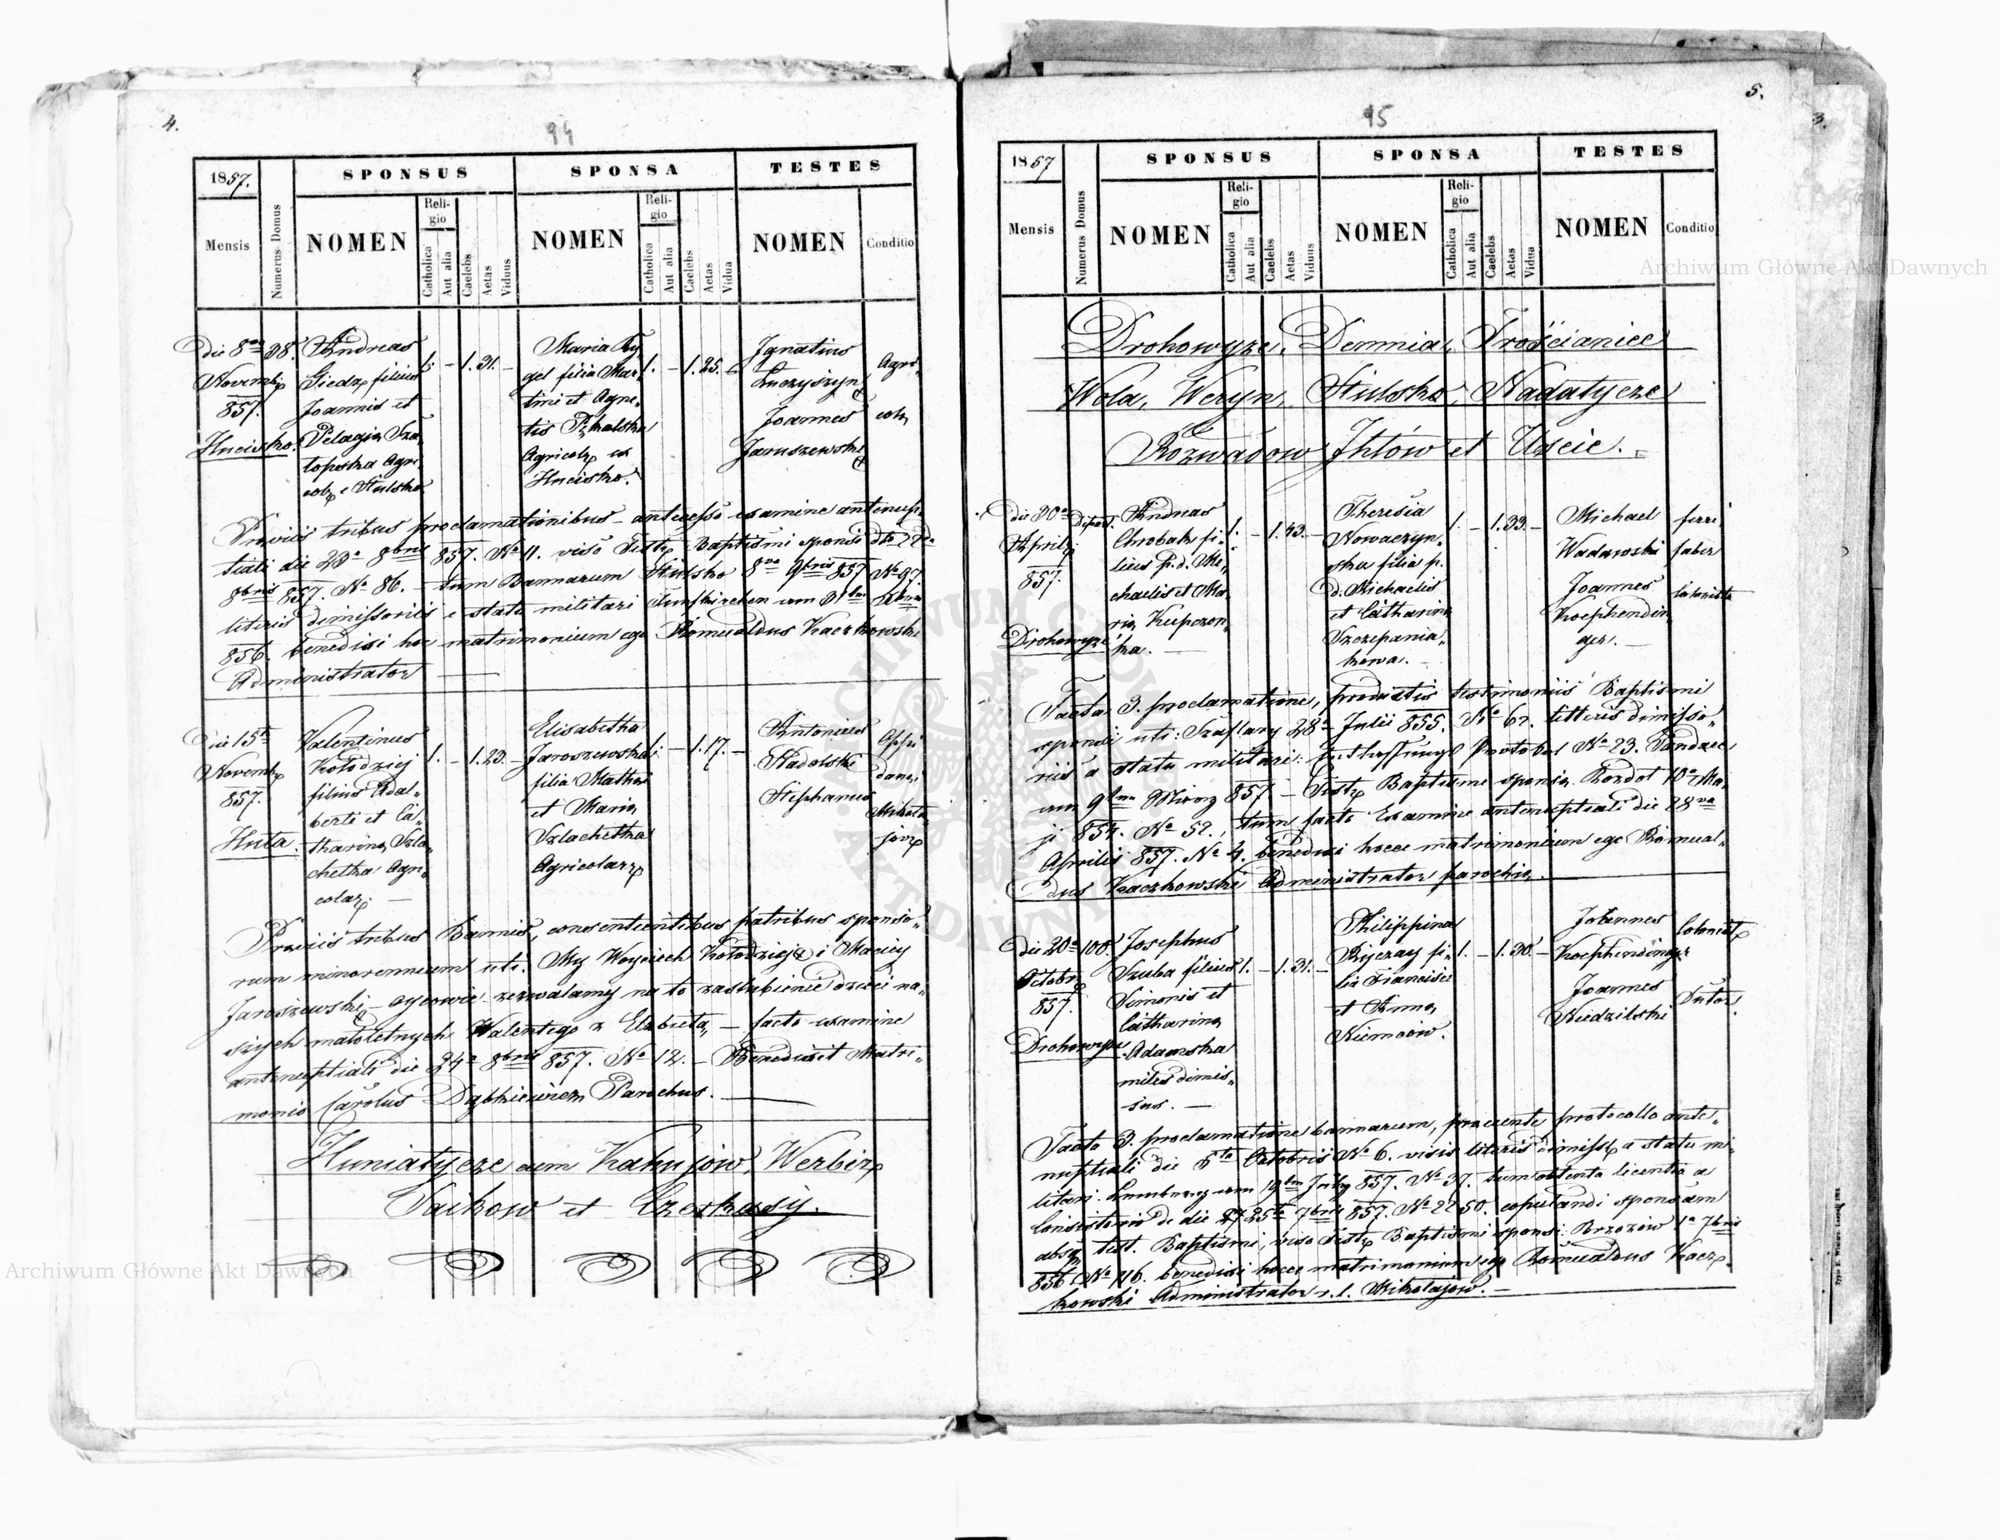 4.
94
1857.
SPONSUS
SPONSA
TESTES
Mensis
Numerus Domus
NOMEN
Religio
Catholica
Aut alia
Caelebs
Aetas
Viduus
NOMEN
Religio
Catholica
Aut alia
Caelebs
Aetas
Vidua
NOMEN
Conditio
Die 8va
Novembr
857.
Hucisko.
38.
Andreas
Giedz filius
Joannis et
Pelagia
Agri-
colae e Stulsko
1. – 1. 31. –
Maria Ry
gel filia Mar-
tini et Agne-
tis Pękalska
Agricolae ex
Hucisko.
1. – 1. 25. –
Ignatius
Łuczyszyn
Joannes
Jaruszewski
Agri-
colae
Praviis tribus proclamationibus – antecesso examine antenup-
tiali die 28a 8bris 857. No 11. viso Testae Baptismi sponsi dto 27a
8bris 857. No 86. – tum Bannarum Stulsko 8va 9bris 857 No 97.
literis dimissoriis e statu militari
856. benedixi hoc matrimonium ego Romualdus Kaczkowski
Administrator
Die 15ta
Novembr
857.
Huta.
Valentinus
Kołodziej
filius Adal-
berti et Ca-
tharina Szla-
chetka Agri-
colar.
1. – 1. 23. –
Elisabetha
Jaroszewska
filia Mathei
et Maria
Szlachetka
Agricolarz
1. – 1. 17. –
Antonius
Nadolski
Stephanus
Oppi
dani
Mikoła
jów
Praviis tribus Bannis, consentientibus patribus sponso-
rum minorennium uti. My Woyciech Kołodziej i Maciey
Jaroszewski – oycowie – zezwalamy na to zaslubienie dzieci na-
szych małoletnych Walentego z Elzbietą, – facto examine
antenuptiali die 24a 8bris 857. No 12. – Benedixit Matri-
monio Carolus Dąbkiewicz Parochus.
Humiatycze cum Kahujów, Werbiż
Paikow et Czerkasy.
5.
95
3.
1857
SPONSUS
SPONSA
TESTES
Mensis
Numerus Domus
NOMEN
Religio
Catholica
Aut alia
Caelebs
Aetas
Viduus
NOMEN
Religio
Catholica
Aut alia
Caelebs
Aetas
Vidua
NOMEN
Conditio
Drohowyze, Demnia, Trościaniec
Wola, Weryn, Stulsko, Nadatycze
Rozwadow Jhłów et Uście.
Die 30a
Aprilis
857.
Drohowyze
Andreas
Chrobak fi-
lius p. d. Mi-
chaelis et Ma-
ria Kupczon-
ka. –
1. – 1. 43. –
Theresia
Nowaczyn-
ska filia p.
d. Michaelis
et Catharina
Szczepania-
kowa. –
1. – 1. 33. –
Michael
Wadawski
Joannes
Koephendin-
ger. –
ferri
faber
Colonista
Facta 3. proclamatione, productis testimoniis Baptismi
sponsi uti: Szaflary 28a Julii 855. No 67. litteris dimisso-
riis a statu militari: Protokol No 23.
857 – Testae Baptismi sponsa Rozdol 10a Ma-
ji 854. No 52., tum facto Examine antenuptiali die 28va
Aprilis 857. No 4. benedixi hocce matrimonium ego Romual-
dus Kaczkowski Administrator parochia.
Die 20a
Octobr
857.
Drohowyze
100.
Josephus
Szuba filius
Simonis et
Catharina
Adamska
miles dimis-
sus. –
1. – 1. 31. –
Philippina
Ryczay fi-
lia Francisci
et Anna
Niemców.
1. – 1. 30. –
Johannes
Koephendinger
Joannes
Niedzilski
Colonista
Sutor
Facta 3. proclamatione bannarum, praeeunte protocollo ante-
nuptiali die 5ta Octobris No 6. visis literis dimiss. a statu mi-
litari. Lemberg am 19ten July 857. No 37. tum obtenta licentia a
Consistorio de die 25ta 7bris 857. No 2250. copulandi sponsam
absq. test. Baptismi, viso Testae Baptismi sponsi: Brzozów 1a 7bris
856 No 716. benedixi hocce matrimonium ego Romualdus Kacz-
kowski Administrator r. l. Mikołajow. –
Archiwum Główne Akt Dawnych
Archiwum Główne Akt Dawnych
ARCHIWUM GŁÓWNE AKT DAWNYCH